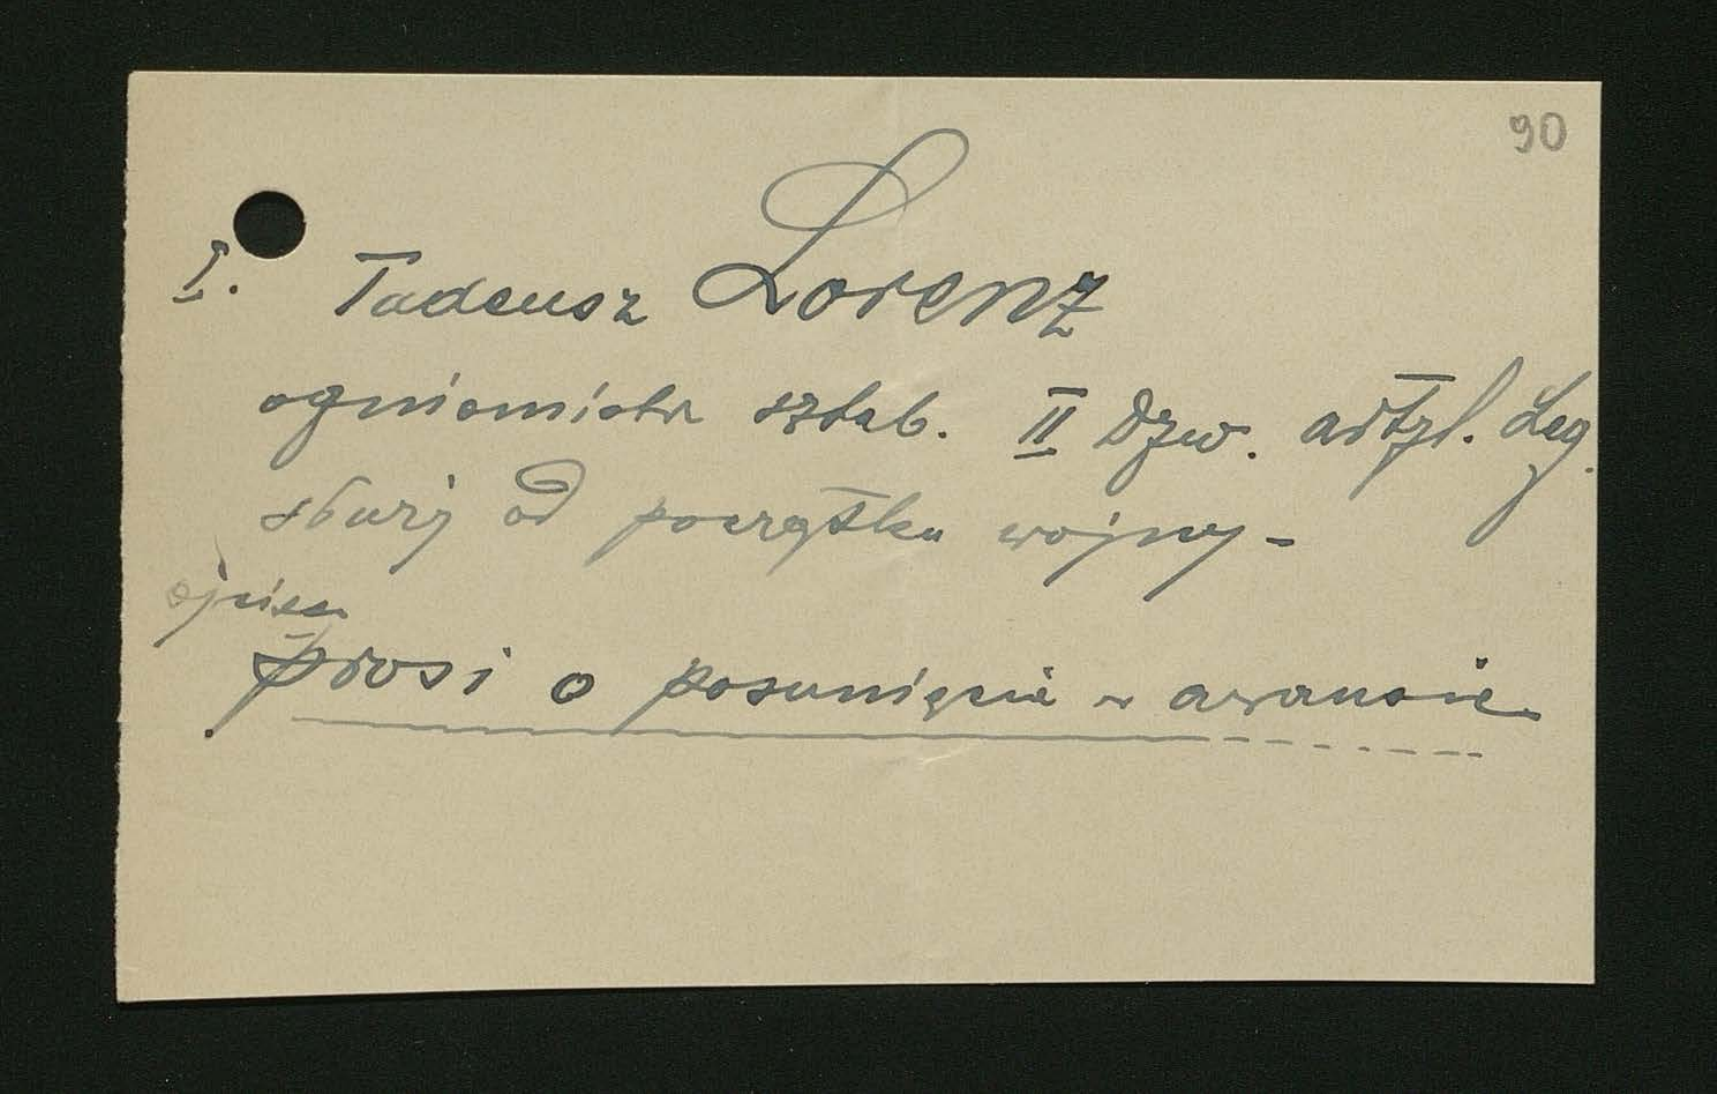 90
I. Tadeusz Lorenz
ogniomistrz sztab. II Dyw. artyl. Leg.
służy od początku wojny –
ojciec
prosi o posunięcie w awansie.